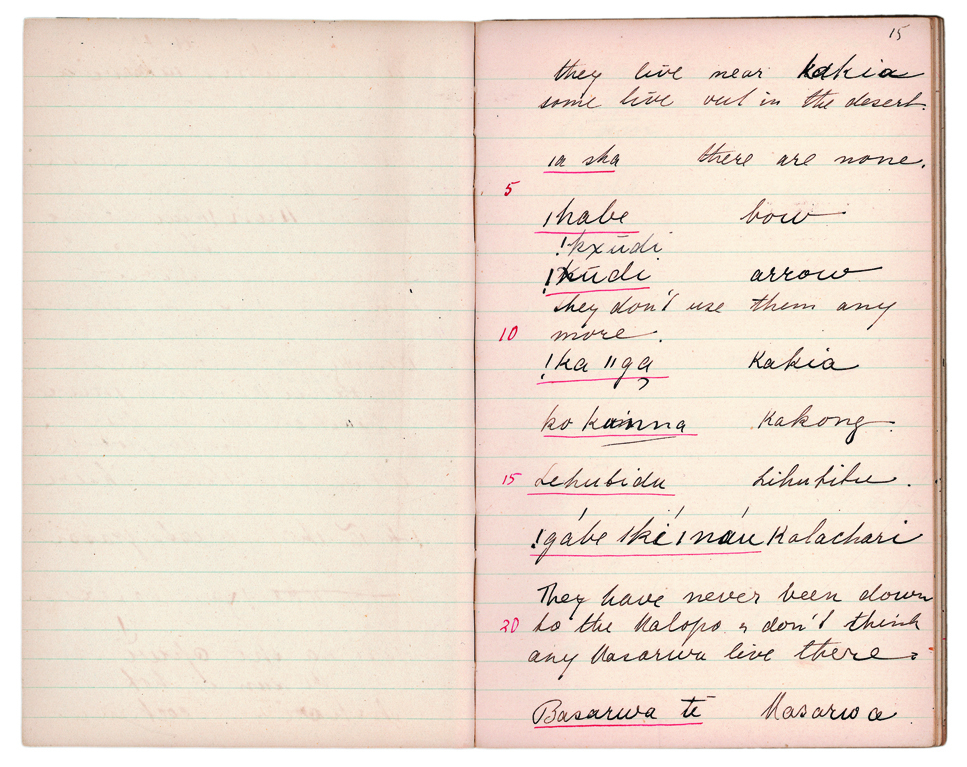 15
they live near kakia
some live out in the desert.
ǀa ska there are none.
5
ǀhabe bow
!kxūdi
!kūdi arrow
they don't use them any
10 more.
!ka ǁga Kakia
ko kainna Kakong.
15 Lehubidu Lihutitu.
!gábe ǀkí ǀnáu Kalachari
They have never been down
20 to the Malopo & don't think
any Masarwa live there.
Basarwa tē Masarwa